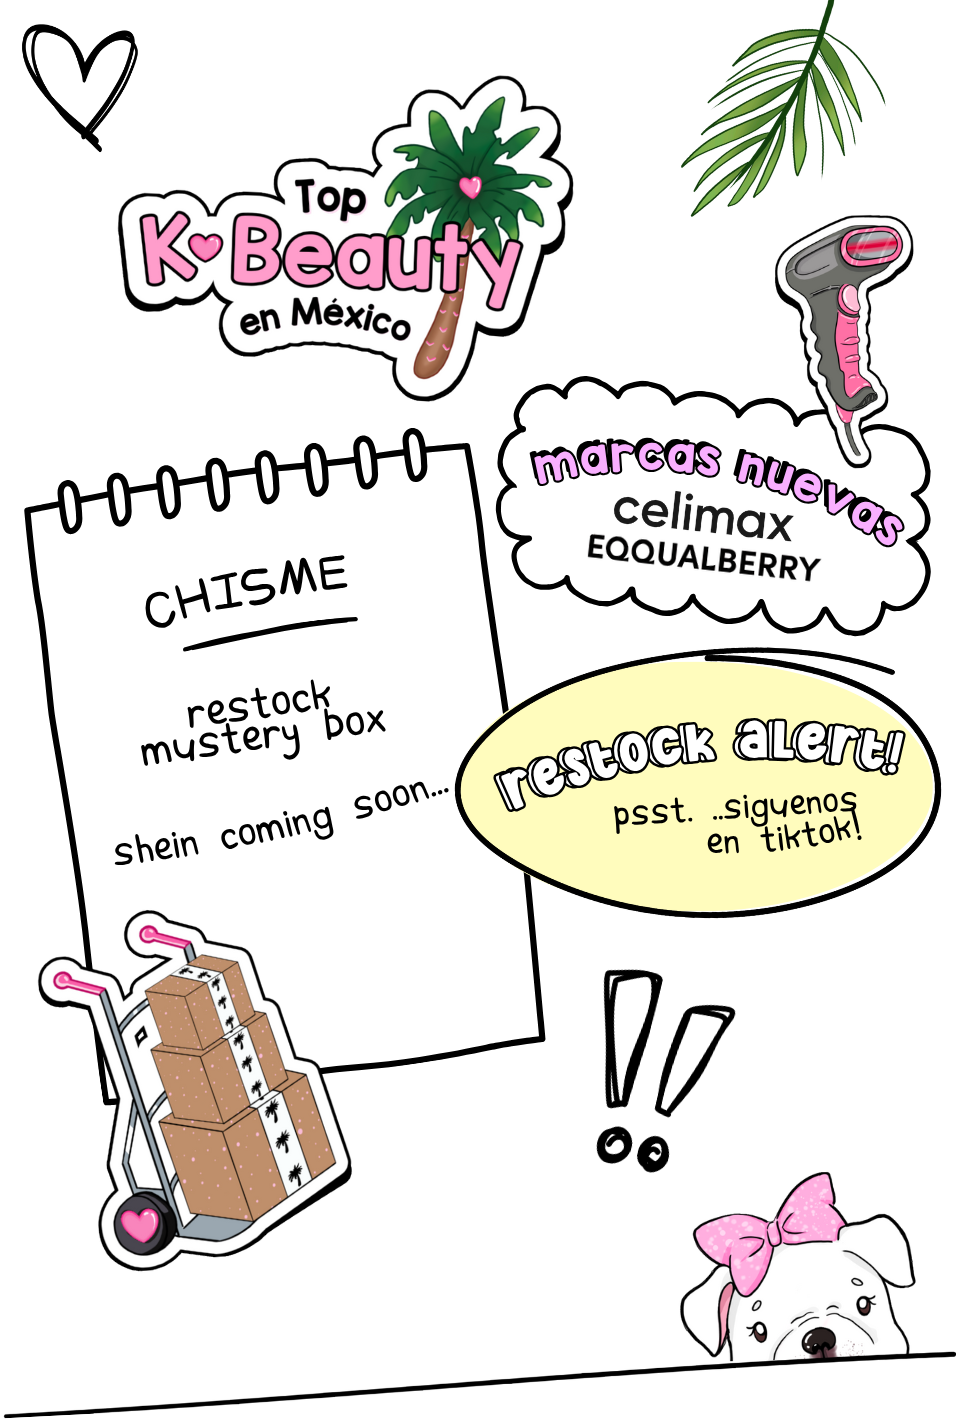 Top
K Beauty
en México
marcas nuevas
celimax
EQQUALBERRY
CHISME
restock
mustery box
shein coming soon...
restock alert!
psst. ..siguenos
en tiktok!
!!